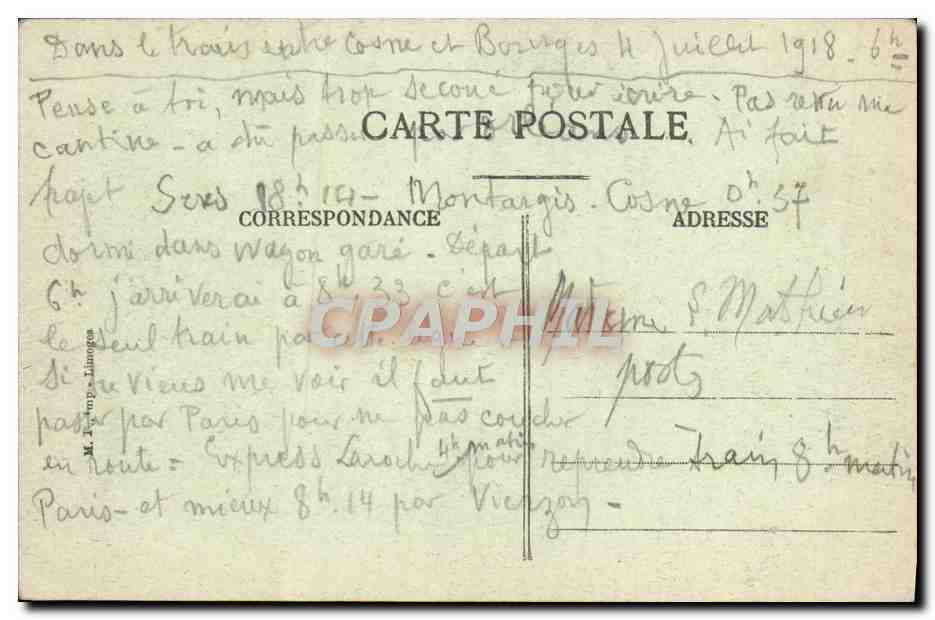 Dans le train entre Cosne et Bourges 4 Juillet 1918 - 6h
Pense à toi, mais trop secoué pour écrire - Pas retenu ma
cantine - a dû passer par
CARTE POSTALE
Ai fait
trajet Sens 18h 14 - Montargis - Cosne 0h 37
CORRESPONDANCE
ADRESSE
dormi dans wagon garé - Départ
6h j'arriverai à 8h 33 c'est
le seul train
Si tu viens me voir il faut
passer par Paris pour ne pas coucher
en route = Express Laroche 4h matin pour reprendre train 8h matin
Paris - et mieux 8h.14 par Vierzon -
Madame S. Mathieu
poste
M. T. Imp. - Limoges
CPAPHIL